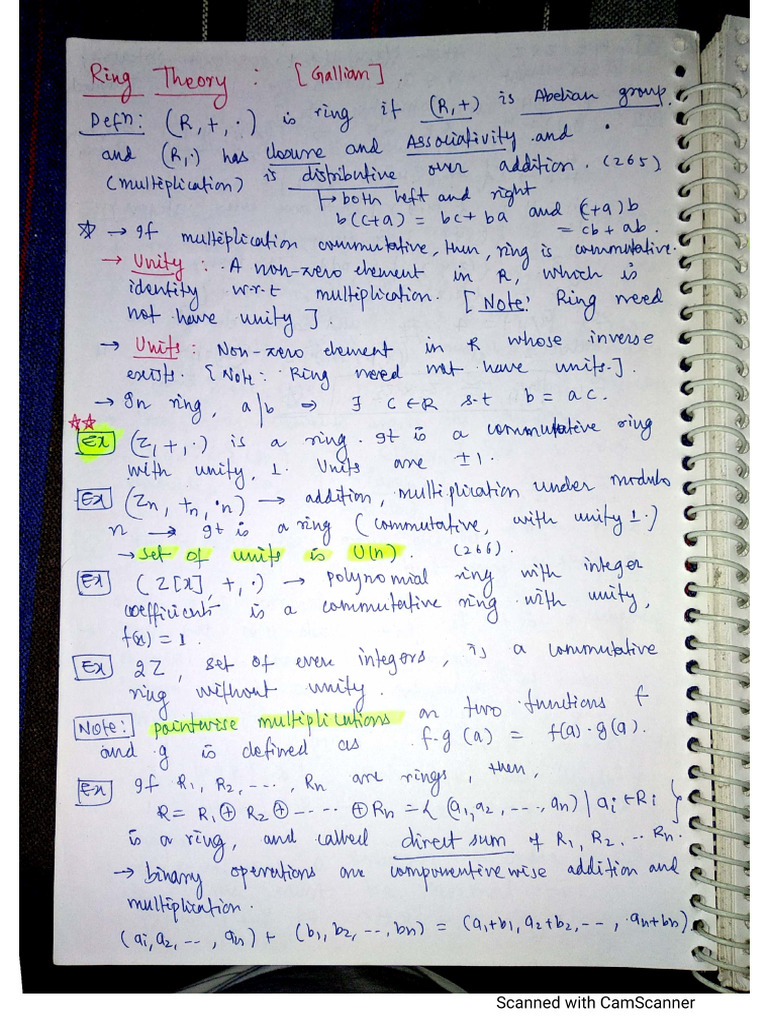 Ring Theory : [Gallian].
Defn: (R, +, ·) is ring if (R,+) is Abelian group.
and (R,·) has closure and Associativity and
(multiplication) is distributive over addition. (265)
↳ both left and right
b(c+a) = bc+ba and (c+a)b
= cb+ab.
☆ → If multiplication commutative, then, ring is commutative.
→ Unity : A non-zero element in R, which is
identity w.r.t multiplication. [Note: Ring need
not have unity].
→ Units: Non-zero element in R whose inverse
exists. [Note: Ring need not have units.].
→ In ring, a|b ⇒ ∃ c∈R s.t b = ac.
☆☆
Ex (Z, +, ·) is a ring. It is a commutative ring
with unity, 1. Units are ±1.
Ex (Zn, +n, ·n) → addition, multiplication under modulo
n → It is a ring (commutative, with unity 1.)
→ set of units is U(n). (266).
Ex (Z[x], +, ·) → polynomial ring with integer
coefficient is a commutative ring with unity,
f(x) = 1.
Ex 2Z, set of even integers, is a commutative
ring without unity.
Note: pointwise multiplications on two functions f
and g is defined as f·g(a) = f(a)·g(a).
Ex If R1, R2, ----, Rn are rings, then,
R = R1 ⊕ R2 ⊕ ---- ⊕ Rn = { (a1, a2, ---, an) | ai ∈ Ri }
is a ring, and called direct sum of R1, R2, -- Rn.
→ binary operations are componentwise addition and
multiplication.
(a1, a2, --, an) + (b1, b2, --, bn) = (a1+b1, a2+b2, --, an+bn).
Scanned with CamScanner